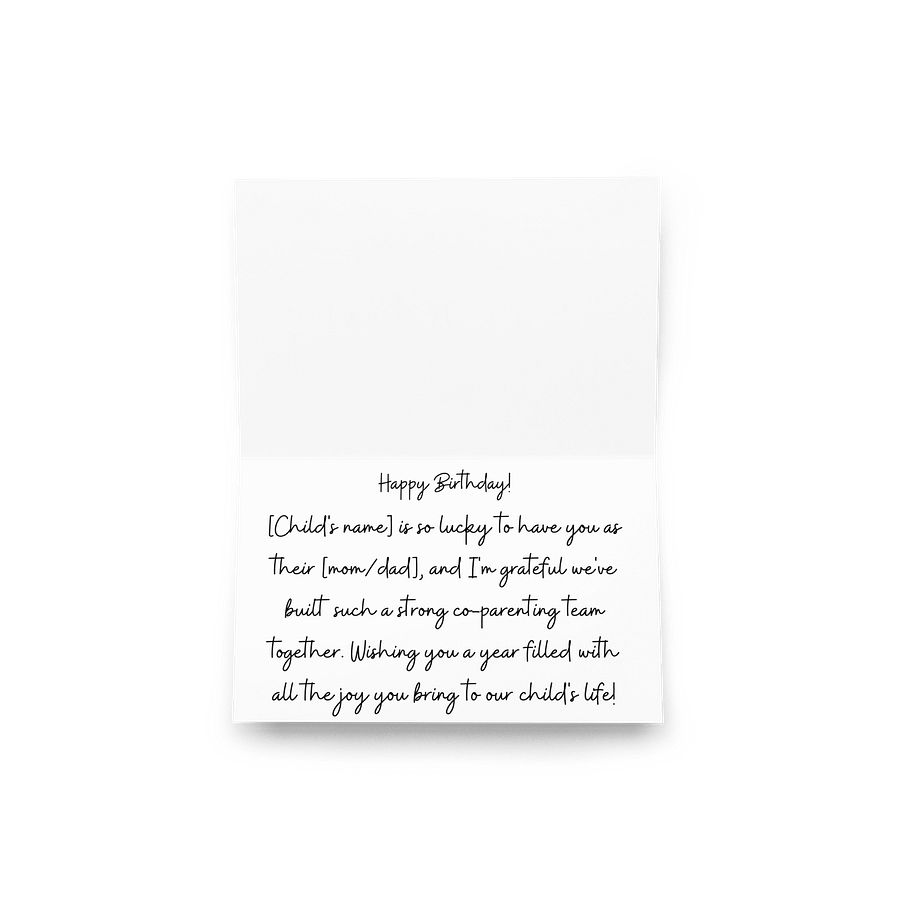 Happy Birthday!
[Child's name] is so lucky to have you as
their [mom/dad], and I'm grateful we've
built such a strong co-parenting team
together. Wishing you a year filled with
all the joy you bring to our child's life!